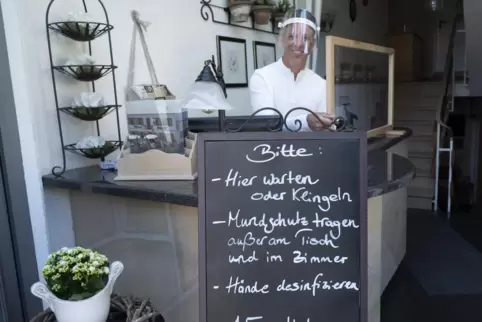 Bitte:
- Hier warten
oder Klingeln
- Mundschutz tragen
außer am Tisch
und im Zimmer
- Hände desinfizieren